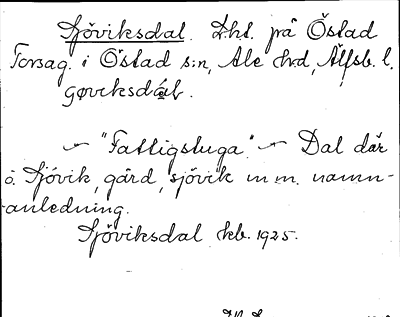 Sjöviksdal. Lht. på Östad
Torsag. i Östad s:n, Ale hd, Älfsb. l.
"Fattigstuga." Dal där
o. Sjövik, gård, sjövik m m. namn-
anledning.
Sjöviksdal kb. 1925.